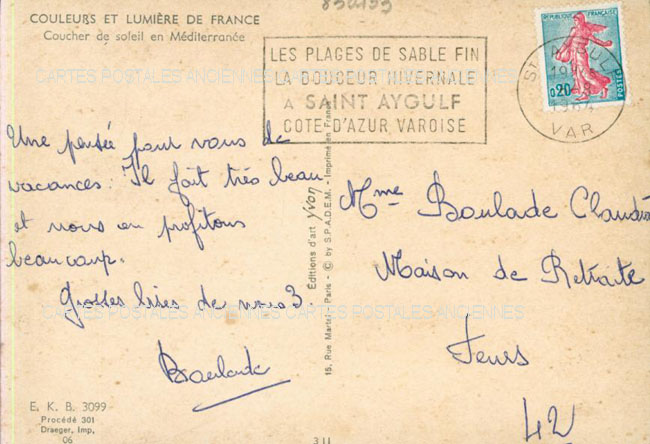 COULEURS ET LUMIÈRE DE FRANCE
Coucher de soleil en Méditerranée
830133
LES PLAGES DE SABLE FIN
LA DOUCEUR HIVERNALE
A SAINT AYGULF
COTE D'AZUR VAROISE
RÉPUBLIQUE FRANÇAISE
0,20
ST AYGULF
VAR
CARTES POSTALES ANCIENNES CARTES POSTALES ANCIENNES
Une pensée pour vous de
vacances. Il fait très beau
et nous en profitons
beaucoup.
Grosses bises de nous 3.
Boulade
Éditions d'art Yvon
15, Rue Martel, Paris - © by S.P.A.D.E.M. - Imprimé en France
Mme Boulade Claudia
Maison de Retraite
Feurs
42
CARTES POSTALES ANCIENNES CARTES POSTALES ANCIENNES
E. K. B. 3099
Procédé 301
Draeger, Imp.
06
311